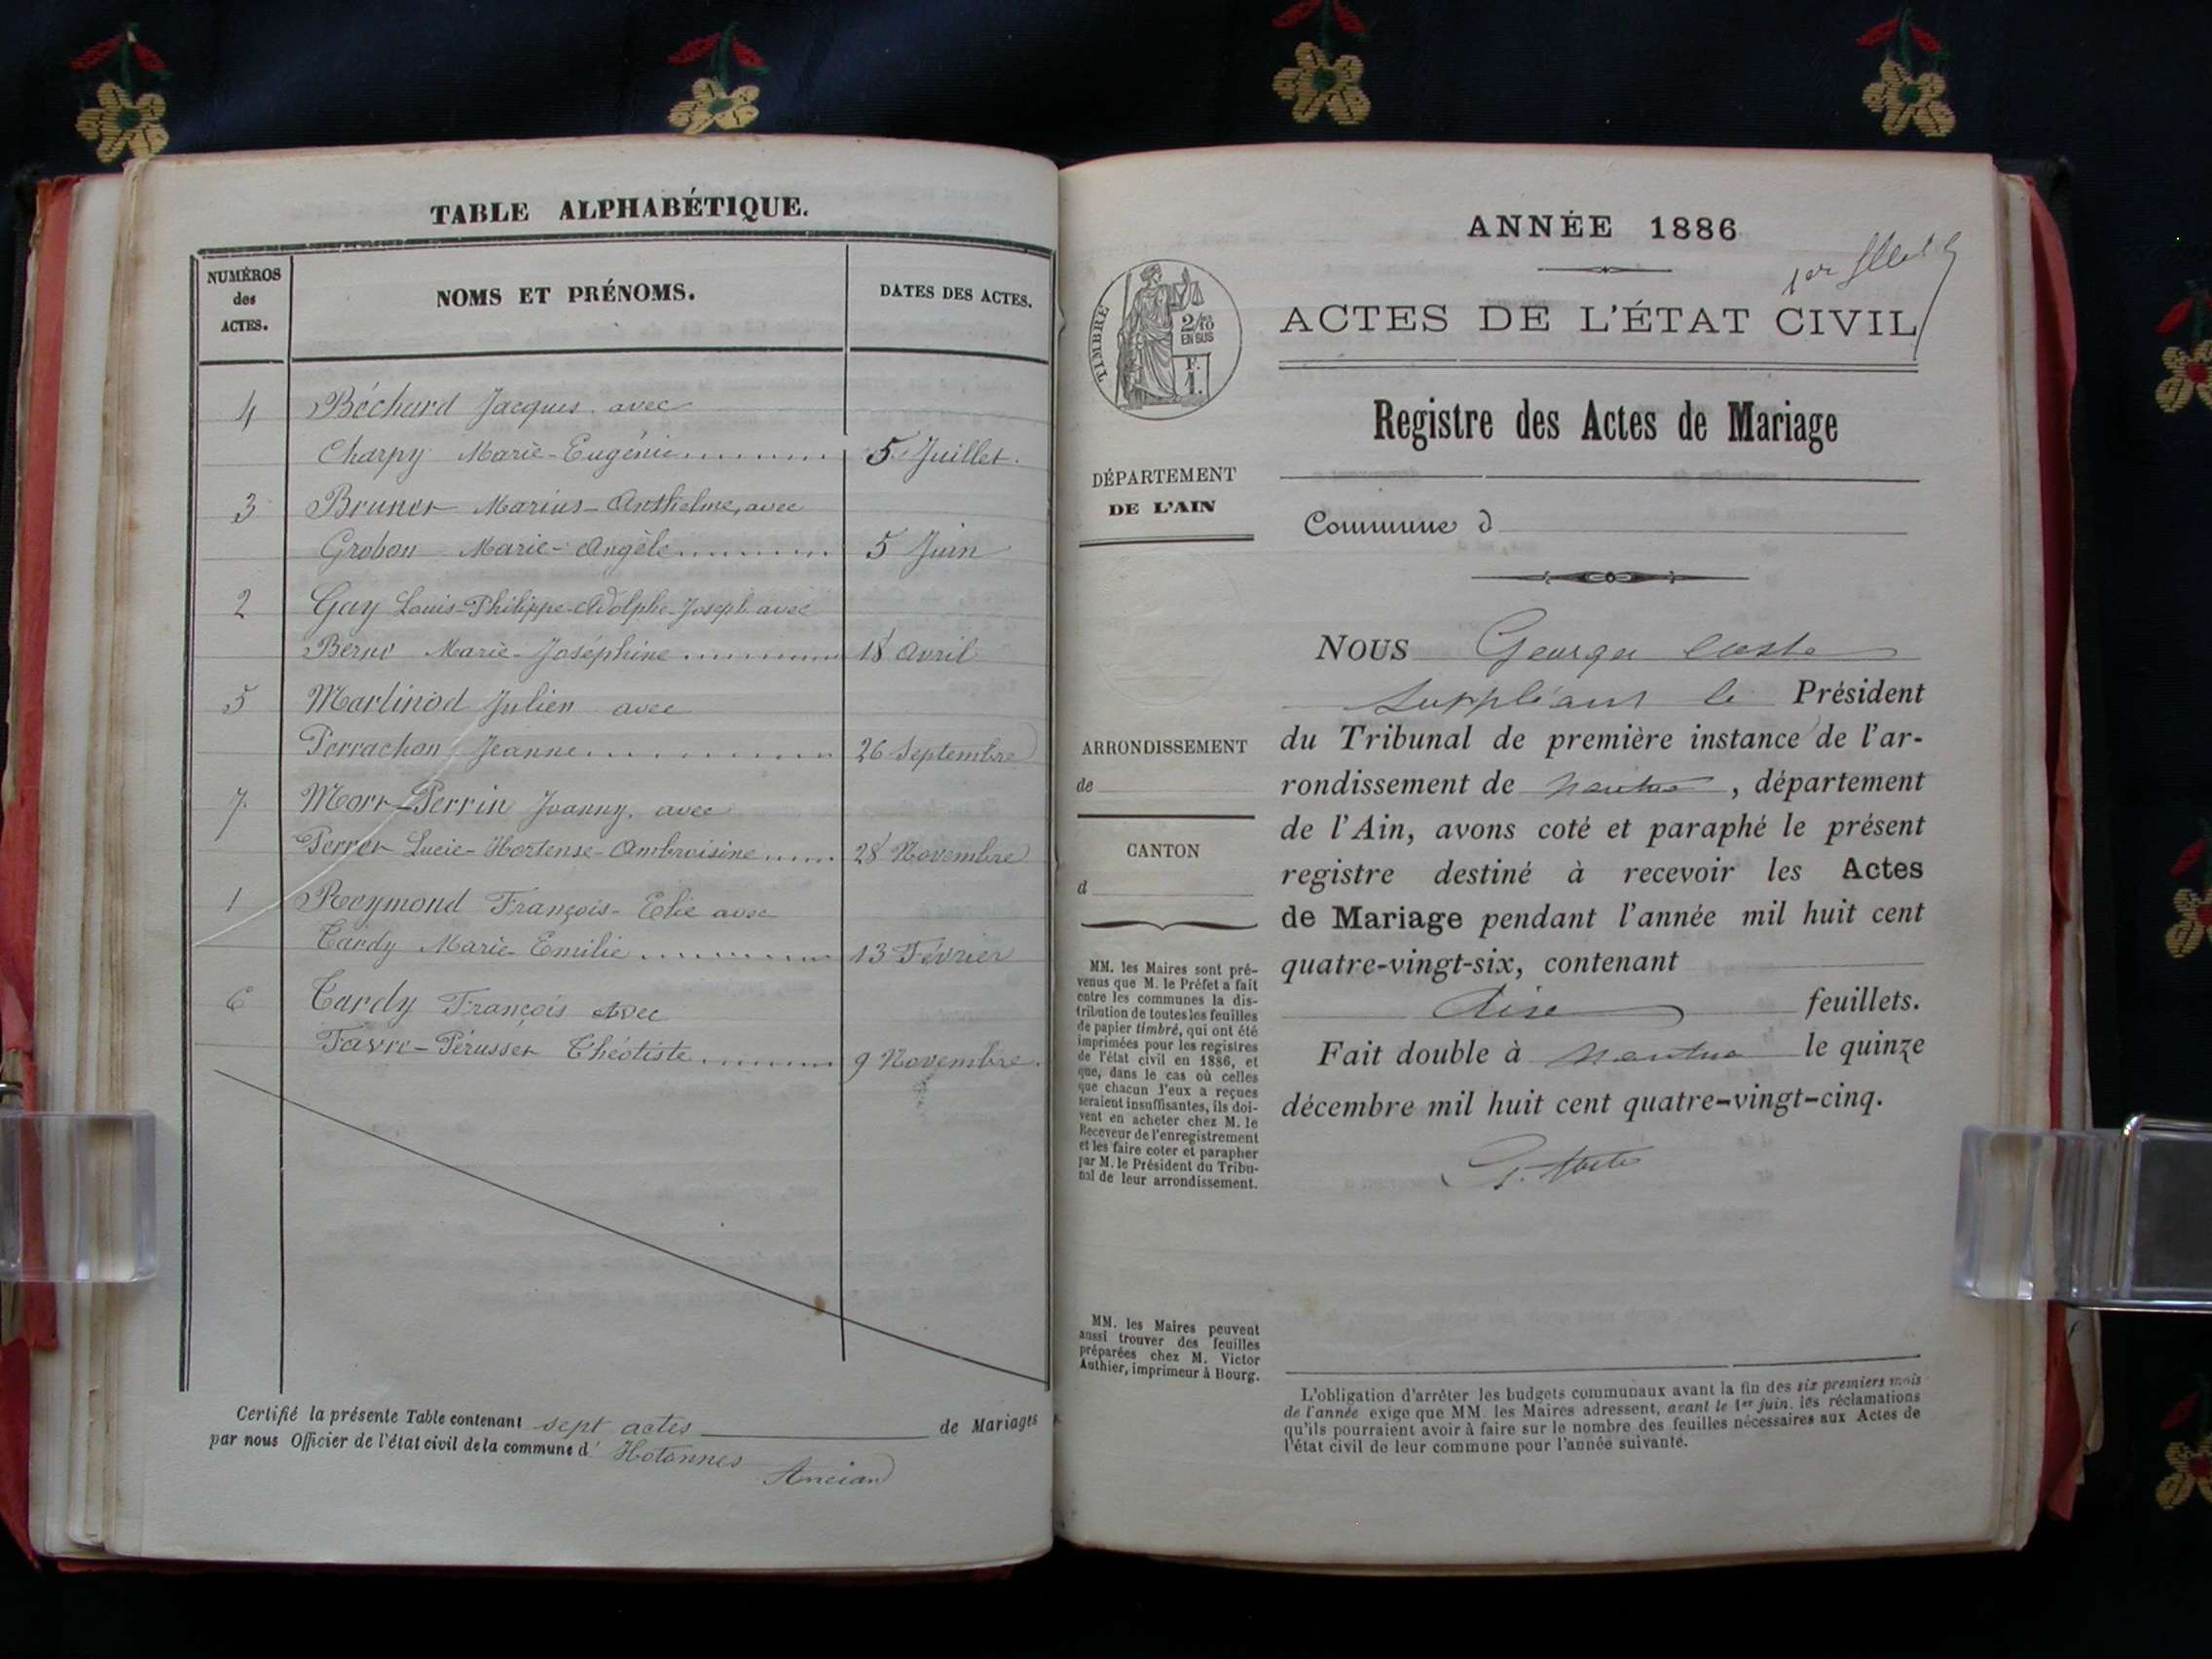 TABLE ALPHABÉTIQUE.
NUMÉROS des ACTES.
NOMS ET PRÉNOMS.
DATES DES ACTES.
4 Béchard Jacques avec
Charpy Marie-Eugénie 5 Juillet.
3 Brunet Marius-Anthelme, avec
Grobon Marie-Angèle 5 Juin
2 Gay Louis-Philippe-Adolphe-Joseph avec
Marie-Joséphine 18 Avril
5 Martinod Julien avec
Perrachon Jeanne 26 Septembre
7. Perrin Joanny, avec
Perret Lucie-Hortense-Ambroisine 28 Novembre
1 Reymond François-Elie avec
Tardy Marie-Emilie 13 Février
6 Tardy François avec
Favre-Pérusset Théotiste 9 Novembre.
Certifié la présente Table contenant sept actes de Mariages
par nous Officier de l'état civil de la commune d' Hotonnes
Ancian
ANNÉE 1886
1er
ACTES DE L'ÉTAT CIVIL
TIMBRE
2/10
EN SUS
F.
1.
Registre des Actes de Mariage
DÉPARTEMENT
DE L'AIN
Commune d
NOUS Georges
suppléant le Président
du Tribunal de première instance de l'ar-
rondissement de Nantua, département
de l'Ain, avons coté et paraphé le présent
registre destiné à recevoir les Actes
de Mariage pendant l'année mil huit cent
quatre-vingt-six, contenant
feuillets.
Fait double à Nantua le quinze
décembre mil huit cent quatre-vingt-cinq.
ARRONDISSEMENT
de
CANTON
d
MM. les Maires sont pré-
venus que M. le Préfet a fait
entre les communes la dis-
tribution de toutes les feuilles
de papier timbré, qui ont été
imprimées pour les registres
de l'état civil en 1886, et
que, dans le cas où celles
que chacun d'eux a reçues
seraient insuffisantes, ils doi-
vent en acheter chez M. le
Receveur de l'enregistrement
et les faire coter et parapher
par M. le Président du Tribu-
nal de leur arrondissement.
MM. les Maires peuvent
aussi trouver des feuilles
préparées chez M. Victor
Authier, imprimeur à Bourg.
L'obligation d'arrêter les budgets communaux avant la fin des six premiers mois
de l'année exige que MM. les Maires adressent, avant le 1er juin, les réclamations
qu'ils pourraient avoir à faire sur le nombre des feuilles nécessaires aux Actes de
l'état civil de leur commune pour l'année suivante.